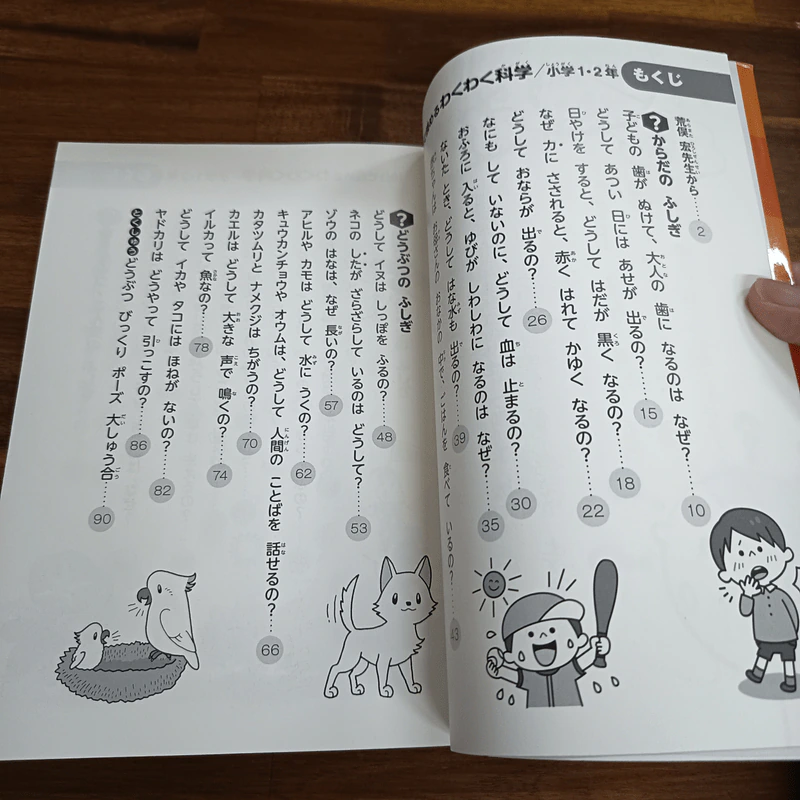 わくわく科学/小学1・2年
もくじ
荒俣 宏先生から……2
?からだの ふしぎ
子どもの 歯が ぬけて、大人の 歯に なるのは なぜ?……10
どうして あつい 日には あせが 出るの?……15
日やけを すると、どうして はだが 黒く なるの?……18
なぜ 力に さされると、赤く はれて かゆく なるの?……22
どうして おならが 出るの?……26
なにも して いないのに、どうして 血は 止まるの?……30
おふろに 入ると、ゆびが しわしわに なるのは なぜ?……35
ないた とき、どうして はな水も 出るの?……39
おなかの 中で、ごはんを 食べて いるの?……43
?どうぶつの ふしぎ
どうして イヌは しっぽを ふるの?……48
ネコの したが ざらざらして いるのは どうして?……53
ゾウの はなは、なぜ 長いの?……57
アヒルや カモは どうして 水に うくの?……62
キュウカンチョウや オウムは、どうして 人間の ことばを 話せるの?……66
カタツムリと ナメクジは ちがうの?……70
カエルは どうして 大きな 声で 鳴くの?……74
イルカって 魚なの?……78
どうして イカや タコには ほねが ないの?……82
ヤドカリは どうやって 引っこすの?……86
とくしゅう どうぶつ びっくり ポーズ 大しゅう合……90